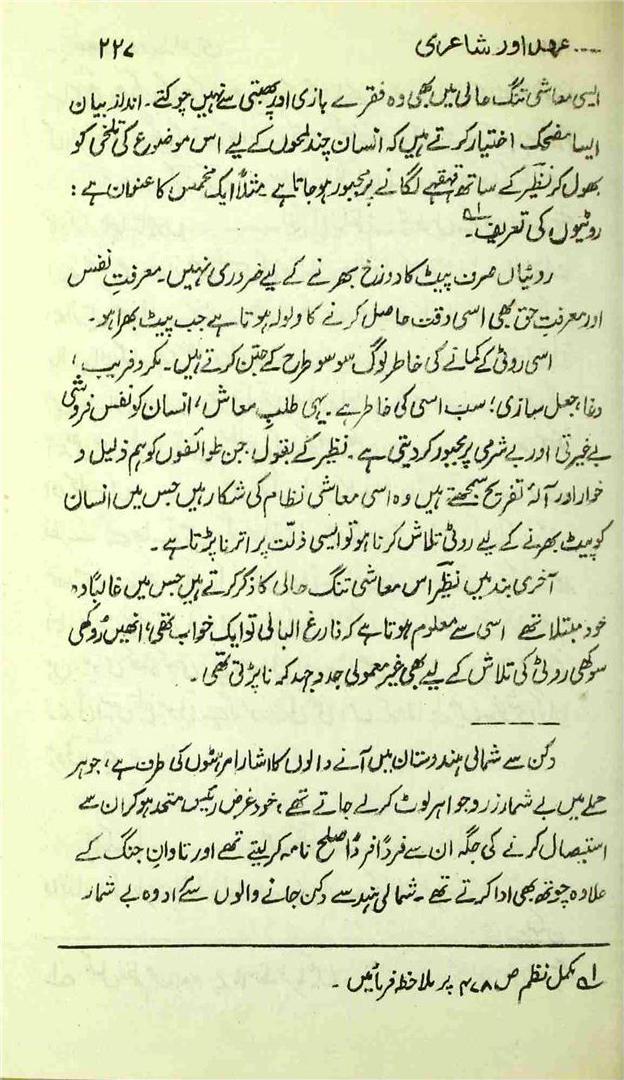 .... عہد اور شاعری ۲۲۷
ایسی معاشی تنگ حالی میں بھی وہ فقرے بازی اور پھبتی سے نہیں چوکتے۔ اندازِ بیان
ایسا مضحک اختیار کرتے ہیں کہ انسان چند لمحوں کے لیے اس موضوع کی تلخی کو
بھول کر نظیر کے ساتھ قہقہے لگانے پر مجبور ہو جاتا ہے مثلاً ایک مخمس کا عنوان ہے:
روٹیوں کی تعریف۔ لہ
روٹیاں صرف پیٹ کا دوزخ بھرنے کے لیے ضروری نہیں۔ معرفتِ نفس
اور معرفتِ حق بھی اسی وقت حاصل کرنے کا ولولہ ہوتا ہے جب پیٹ بھرا ہو۔
اسی روٹی کے کمانے کی خاطر لوگ سو سو طرح کے جتن کرتے ہیں۔ مکر و فریب،
دغا، جعل سازی؛ سب اسی کی خاطر ہے۔ یہی طلبِ معاش، انسان کو نفس فروشی
بے غیرتی اور بے شرمی پر مجبور کر دیتی ہے۔ نظیر کے بقول، جن طوائفوں کو ہم ذلیل و
خوار اور آلۂ تفریح سمجھتے ہیں وہ اسی معاشی نظام کی شکار ہیں جس میں انسان
کو پیٹ بھرنے کے لیے روٹی تلاش کرنا ہو تو ایسی ذلّت پر اترنا پڑتا ہے۔
آخری بند میں نظیر اس معاشی تنگ حالی کا ذکر کرتے ہیں جس میں غالباً وہ
خود مبتلا تھے اسی سے معلوم ہوتا ہے کہ فارغ البالی تو ایک خواب تھی، انھیں رُوکھی
سوکھی روٹی کی تلاش کے لیے بھی غیر معمولی جدوجہد کرنا پڑتی تھی۔
دکن سے شمالی ہندوستان میں آنے والوں کا اشارا مرہٹوں کی طرف ہے، جو ہر
حملے میں بے شمار زر و جواہر لوٹ کر لے جاتے تھے، خود غرض رئیس متحد ہو کر ان سے
استیصال کرنے کی جگہ ان سے فرداً فرداً صلح نامہ کر لیتے تھے اور تاوانِ جنگ کے
علاوہ چوتھ بھی ادا کرتے تھے۔ شمالی ہند سے دکن جانے والوں سے مراد وہ بے شمار
لہ مکمل نظم ص ۴۷۸ پر ملاحظہ فرمائیں۔